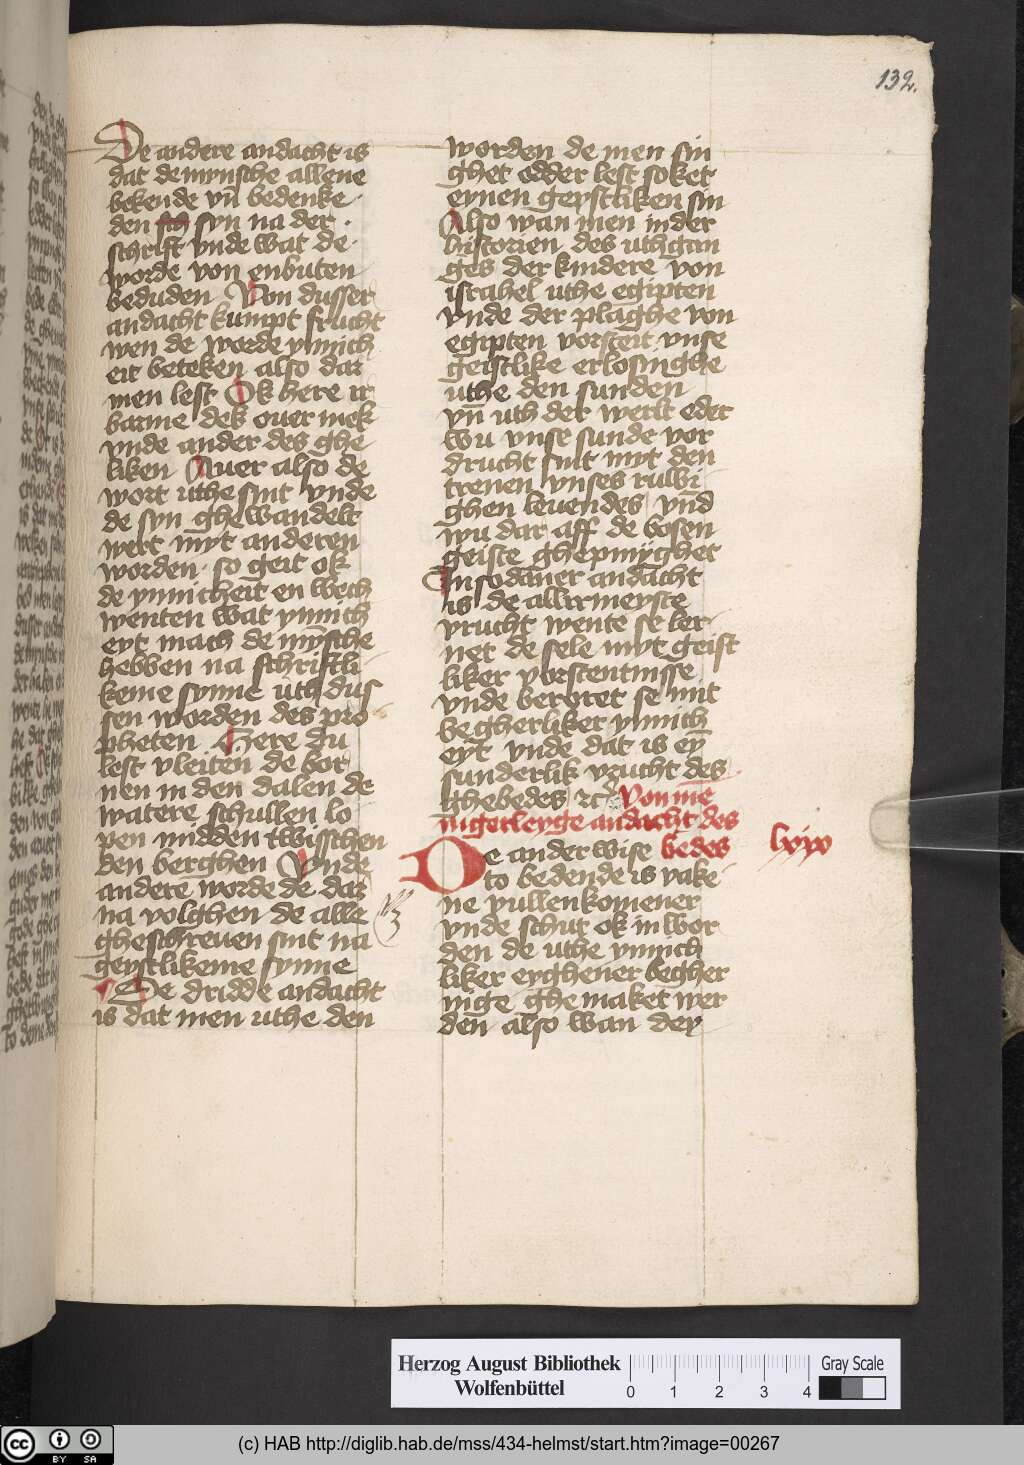 132.
De andere andacht is
dat de mynsche allene
bekende vn̄ bedenke
den syn na der
schrift vnde wat de
worde von enbuten
beduden Von dusser
andacht kumpt frucht
wen de worde ynnich
eit beteken also dar
men lest Ok here ir
barme dek ouer mek
vnde ander des ghe
liken Auer also de
wort uthe sint vnde
de syn ghewandelt
wert myt anderen
worden so geit ok
de ynnicheit en wech
wenten wat ynnich
eyt mach de mȳsche
hebben na schriftli
keme synne uth dus
sen worden des pro
pheten Here du
lest vleiten de bor
nen in den dalen de
watere schullen lo
pen midden twisschen
den berghen Vnde
andere worde de dar
na volghen de alle
gheschreuen sint na
geystlikeme synne
De dridde andacht
is dat men uthe den
worden de men sin
ghet edder lest soket
eynen geystliken sin
Also wan men in der
historien des uthgan
ges der kindere von
israhel uthe egipten
vnde der plaghe von
egipten vorsteit vnse
geistlike erlosinghe
uthe den sunden
vn̄ uth der werlt eder
wu vnse sunde vor
drucht sint myt den
trenen vnses ruwi
ghen leuendes vnd
wu dar aff de bosen
geiste ghepinyghet
In sodaner andacht
is de allirmeyste
vrucht wente se ler
net de sele myt geist
liker vorstentnisse
vnde beroret se mit
begherliker ynnich
eyt vnde dat is eȳ
sunderlik vrucht des
ghebedes ⁊c̄ Von me
nigerleyge andacht des
bedes lxix
De ander wise
to bedende is vake
ne vullenkomener
vnde schut ok in wor
den de uthe ynnich
liker eyghener begher
nige ghemaket wer
den also wan der
Herzog August Bibliothek
Wolfenbüttel
0 1 2 3 4
Gray Scale
cc BY SA
(c) HAB http://diglib.hab.de/mss/434-helmst/start.htm?image=00267